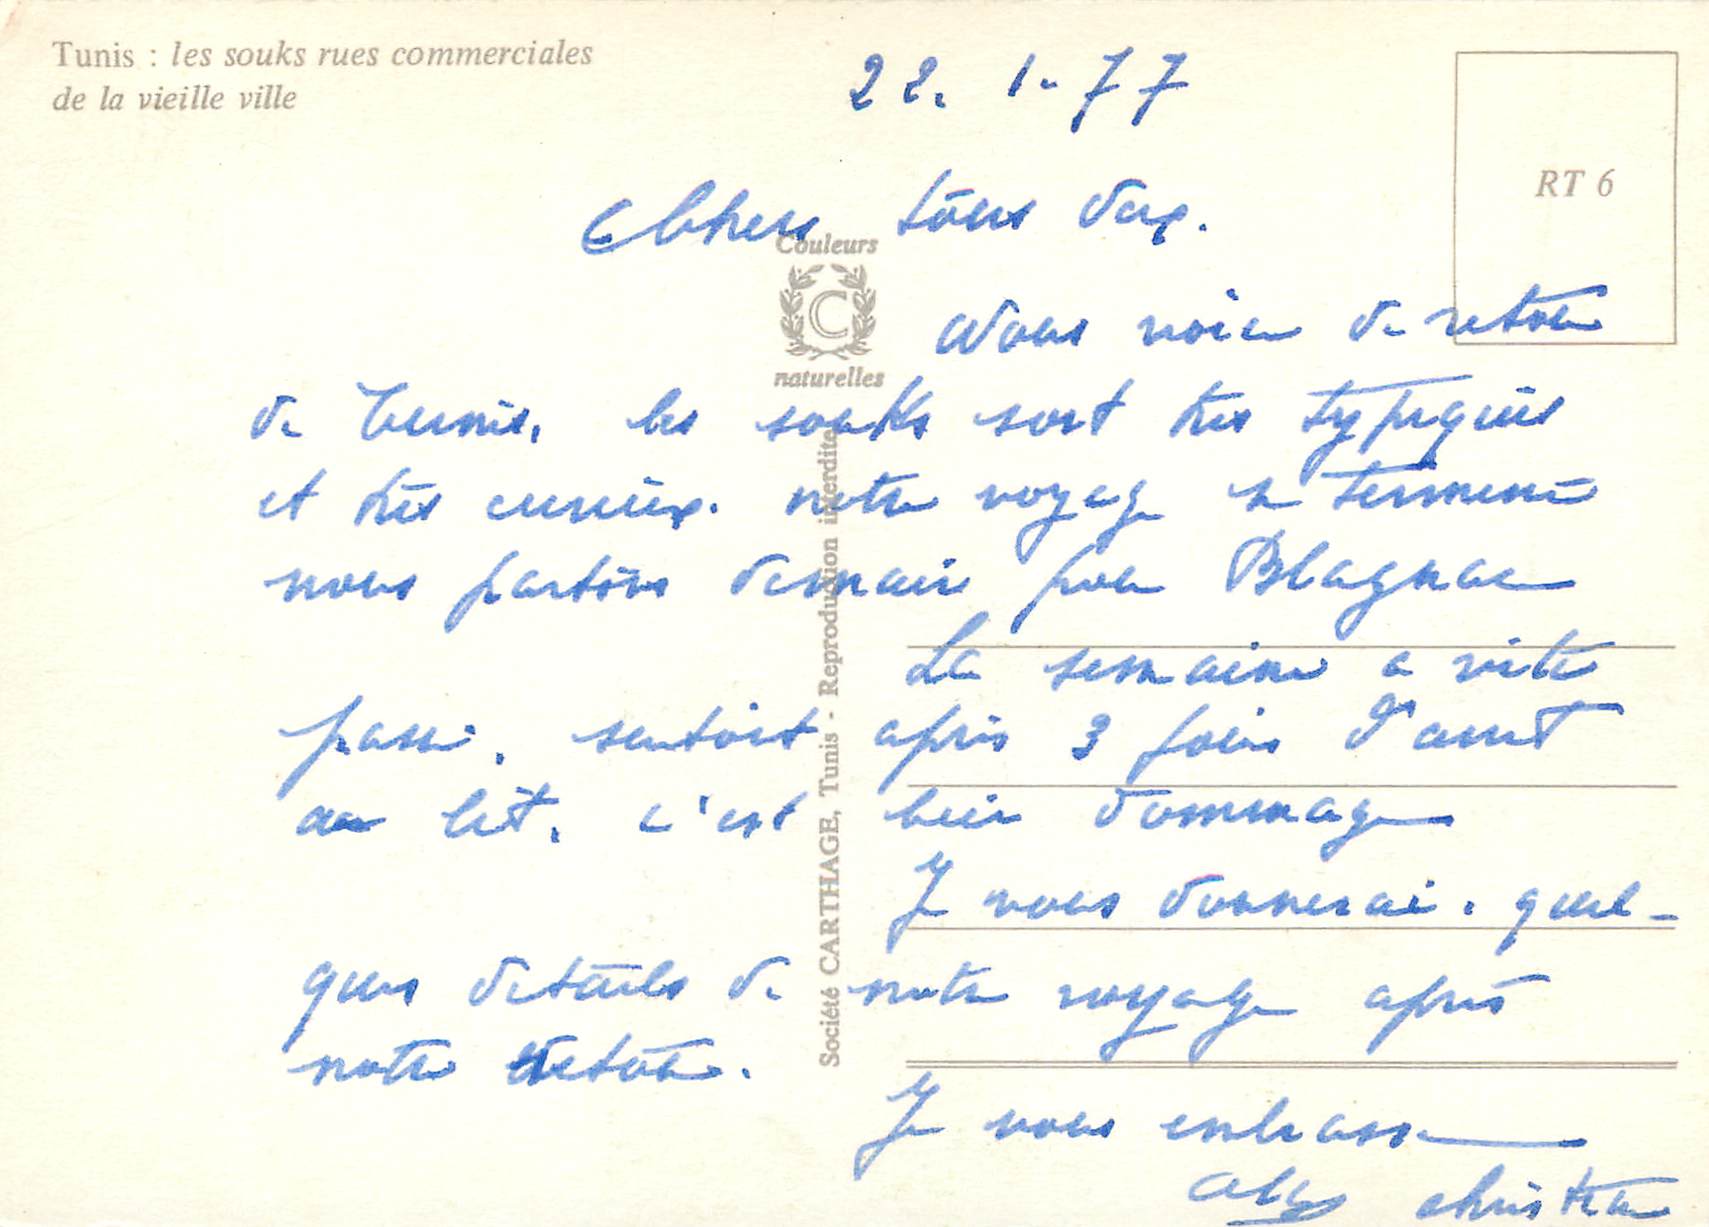 Tunis : les souks rues commerciales
de la vieille ville
22. 1. 77
RT 6
Chers tous deux.
Couleurs
C
naturelles
Nous voici de retour
de Tunis. les souks sont très typiques
et très curieux. notre voyage se termine
nous partons demain pour Blagnac
La semaine a vite
passé, surtout après 3 jours d'arrêt
au lit. c'est bien dommage
Je vous donnerai. quel-
ques détails de notre voyage après
notre retour.
Je vous embrasse
Société CARTHAGE, Tunis - Reproduction interdite